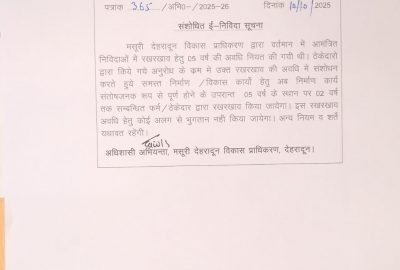 पत्रांक 365 /अभि0-/2025-26 दिनांक 10/10/2025
संशोधित ई-निविदा सूचना
मसूरी देहरादून विकास प्राधिकरण द्वारा वर्तमान में आमंत्रित
निविदाओं में रखरखाव हेतु 05 वर्ष की अवधि नियत की गयी थी। ठेकेदारो
द्वारा किये गये अनुरोध के कम में उक्त रखरखाव की अवधि में संशोधन
करते हुये समस्त निर्माण /विकास कार्यो हेतु अब निर्माण कार्य
संतोषजनक रूप से पूर्ण होने के उपरान्त 05 वर्ष के स्थान पर 02 वर्ष
तक सम्बन्धित फर्म/ठेकेदार द्वारा रखरखाव किया जायेगा। इस रखरखाव
अवधि हेतु कोई अलग से भुगतान नही किया जायेगा। अन्य नियम व शर्ते
यथावत रहेगी।
अधिशासी अभियन्ता, मसूरी देहरादून विकास प्राधिकरण, देहरादून।